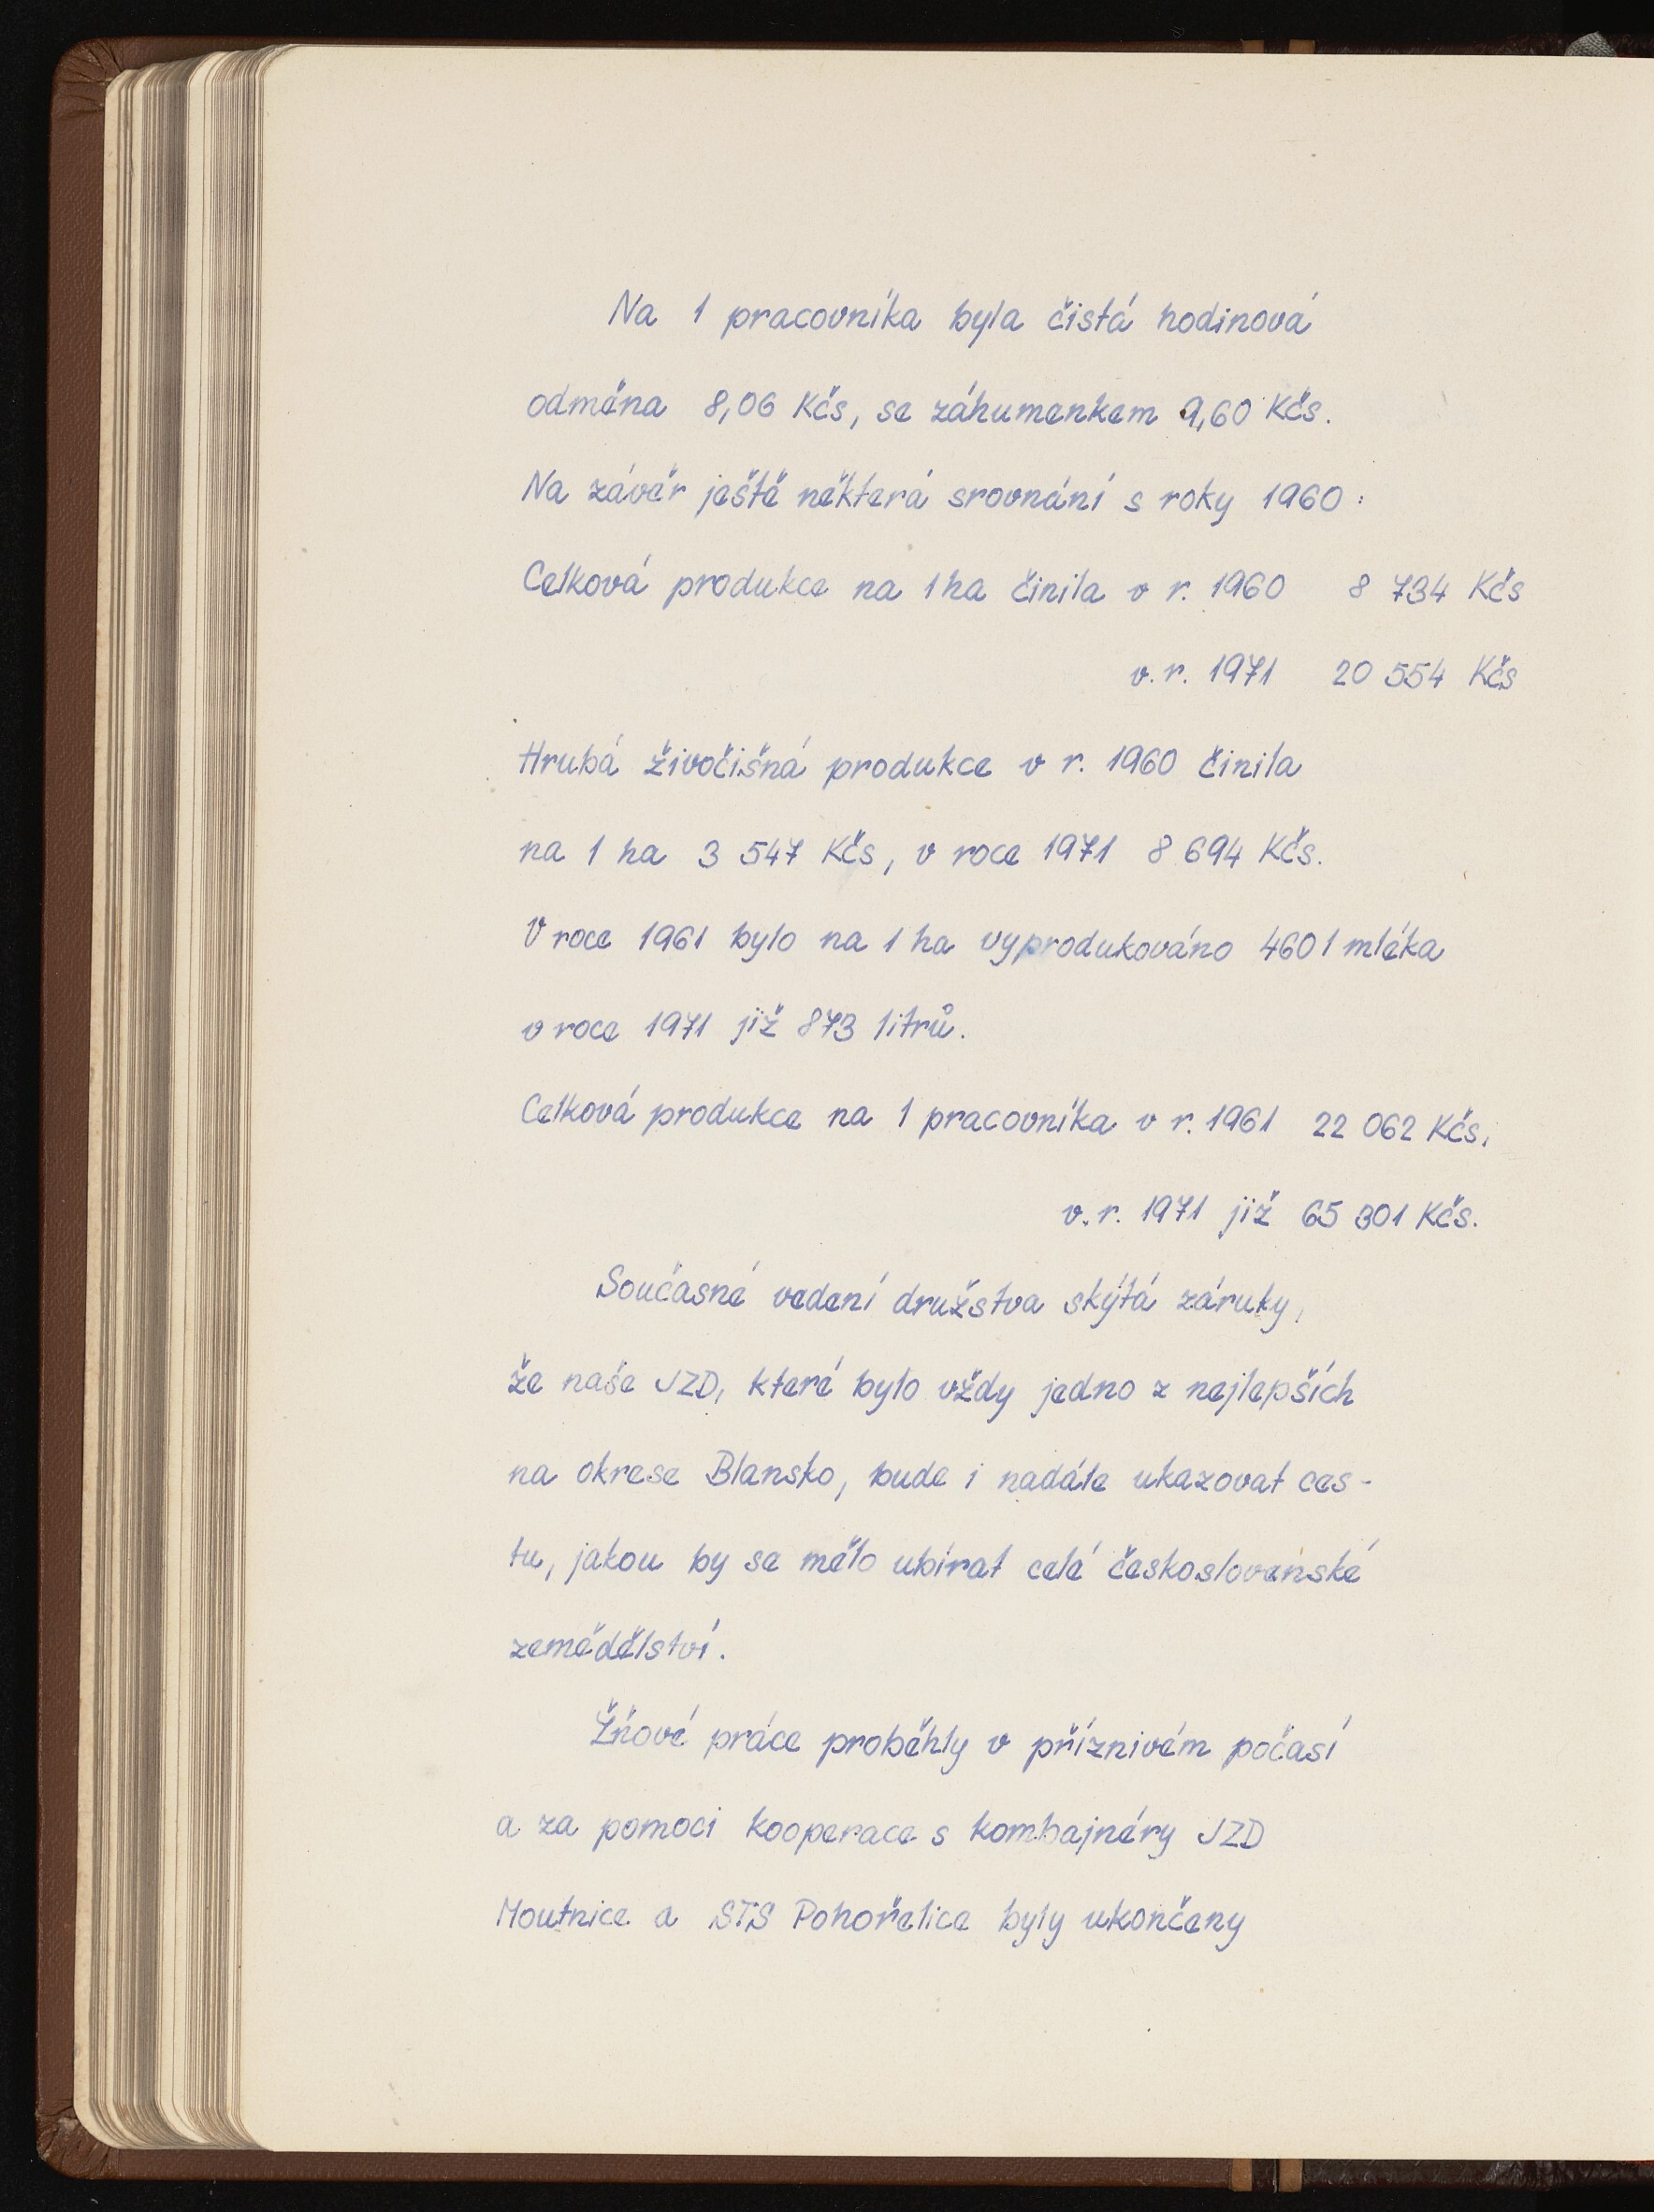 Na 1 pracovníka byla čistá hodinová
odměna 8,06 Kčs, se záhumenkem 9,60 Kčs.
Na závěr ještě některá srovnání s roky 1960:
Celková produkce na 1 ha činila v r. 1960 8 734 Kčs
v. r. 1971 20 554 Kčs
Hrubá živočišná produkce v r. 1960 činila
na 1 ha 3 547 Kčs, v roce 1971 8 694 Kčs.
V roce 1961 bylo na 1 ha vyprodukováno 460 l mléka
v roce 1971 již 873 litrů.
Celková produkce na 1 pracovníka v r. 1961 22 062 Kčs,
v. r. 1971 již 65 301 Kčs.
Současné vedení družstva skýtá záruky,
že naše JZD, které bylo vždy jedno z nejlepších
na okrese Blansko, bude i nadále ukazovat ces-
tu, jakou by se mělo ubírat celé československé
zemědělství.
Žňové práce proběhly v příznivém počasí
a za pomoci kooperace s kombajnéry JZD
Moutnice a STS Pohořelice byly ukončeny